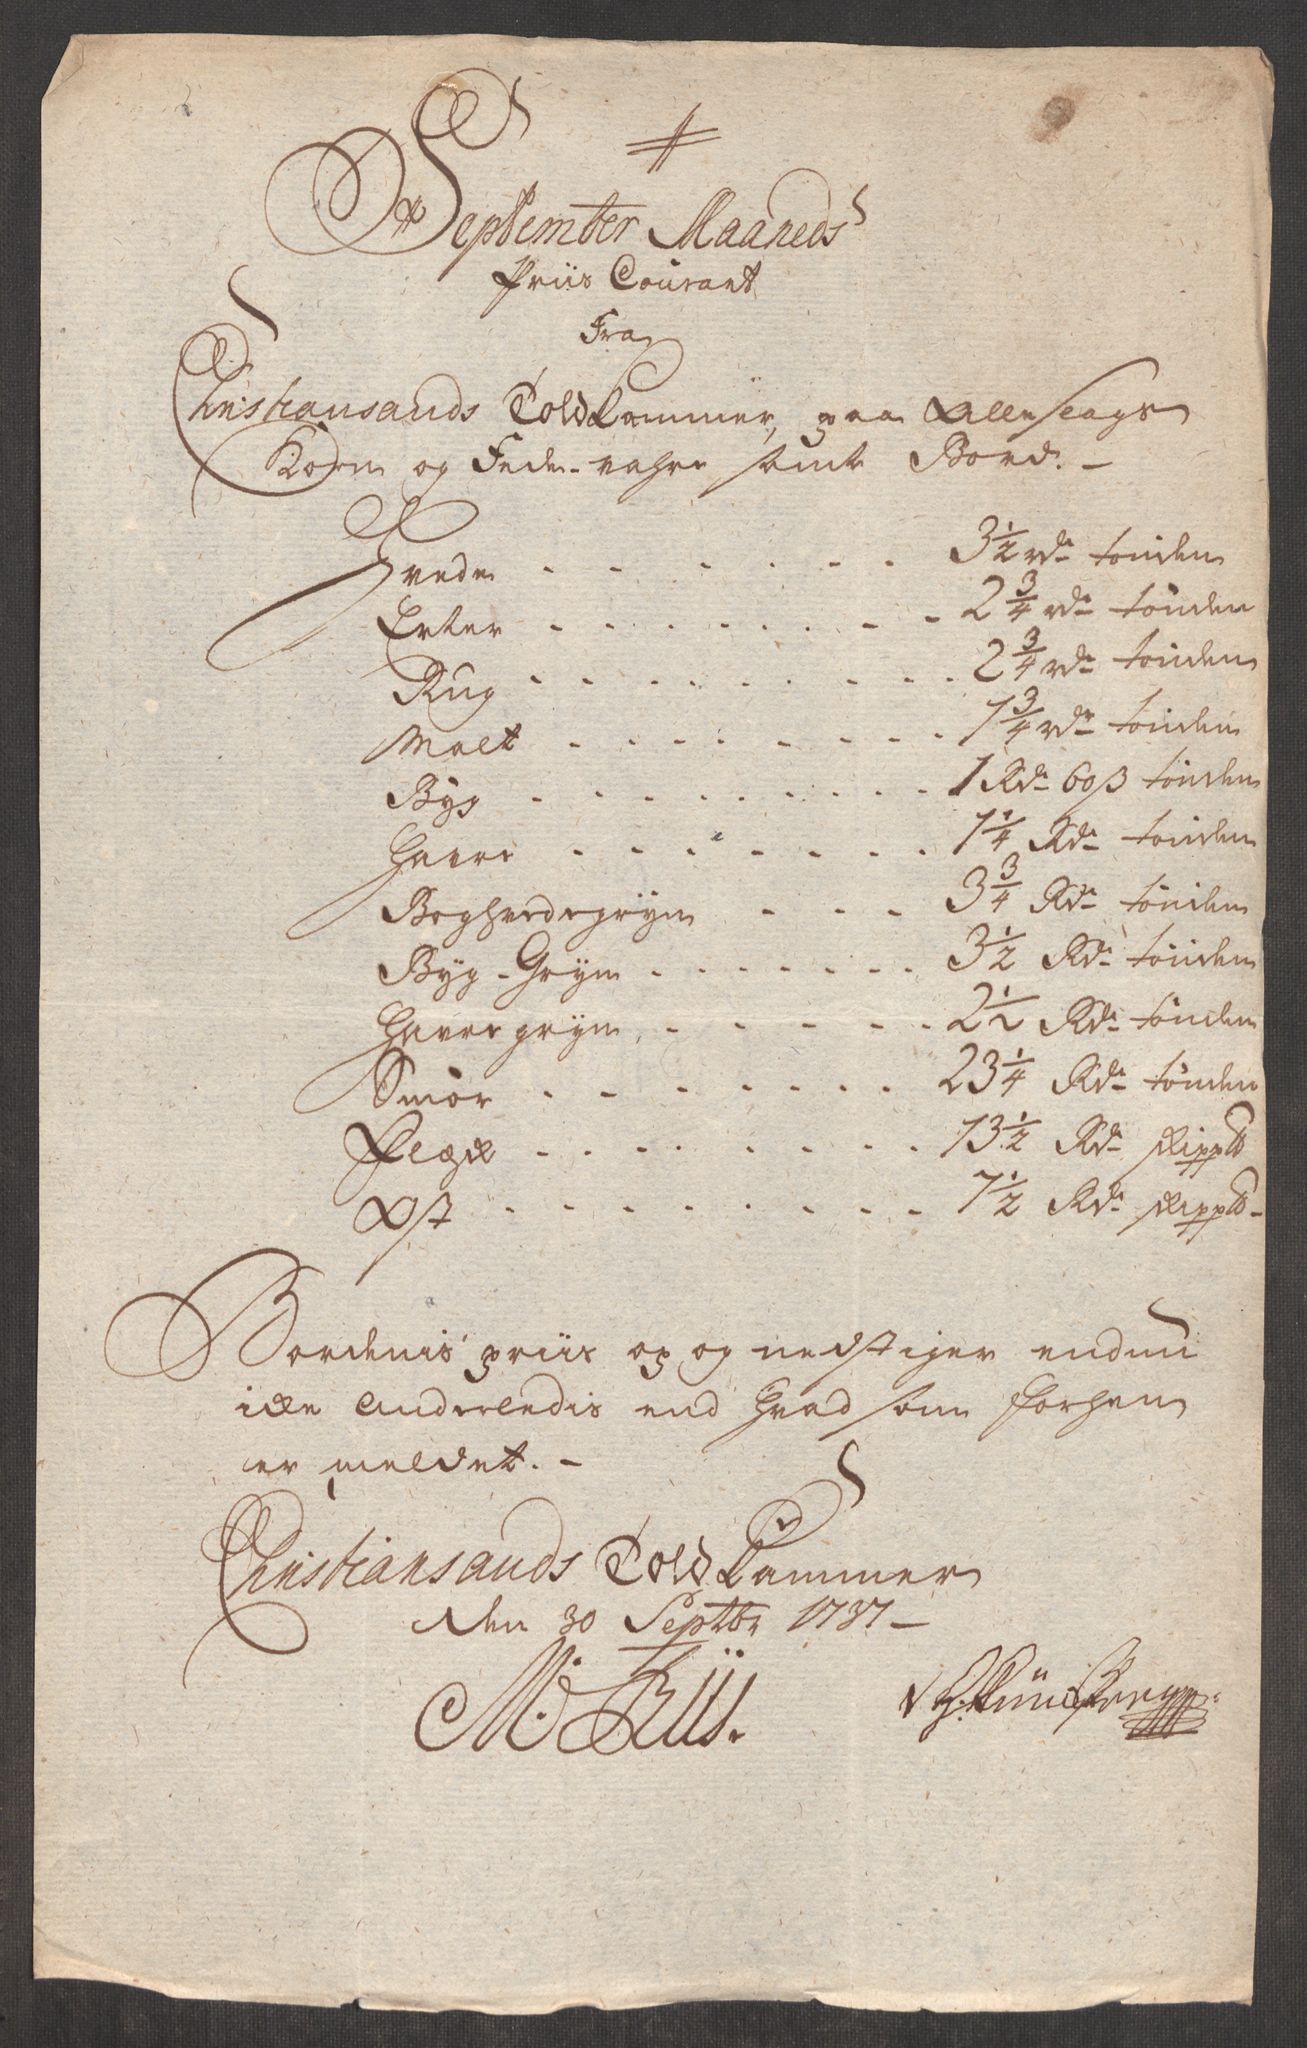 September Maaneds
Priis Courant
Fra
Christiansands Told Cammer, paa Alle slags
Korn og Fede-vahre samt Bord. -
Hvede . . . . . . 3 1/2 rdr tønden
Erter . . . . . . . . 2 3/4 rdr tønden
Rug . . . . . . . . . 2 3/4 rdr tønden
Malt . . . . . . . . 1 3/4 rdr tønden
Byg . . . . . . . . . 1 Rdr 60 ß tønden
Havre . . . . . . . 1 1/4 Rdr tønden
Boghvedegryn . . . 3 3/4 Rdr tønden
Byg-Gryn . . . . . . . 3 1/2 Rdr tønden
Havregryn . . . . . 2 1/2 Rdr tønden
Smør . . . . . . . 23 1/4 Rdr tønden
Flesk . . . . . . . 13 1/2 Rdr skippd
Ost . . . . . . . . 7 1/2 Rdr skippd -
Bordenis priis op og nedstiger endnu
icke Anderledis end hvad som forhen
er meldet. -
Christiansands Told Cammer
den 30 Septbr 1737 -
M. Riis.